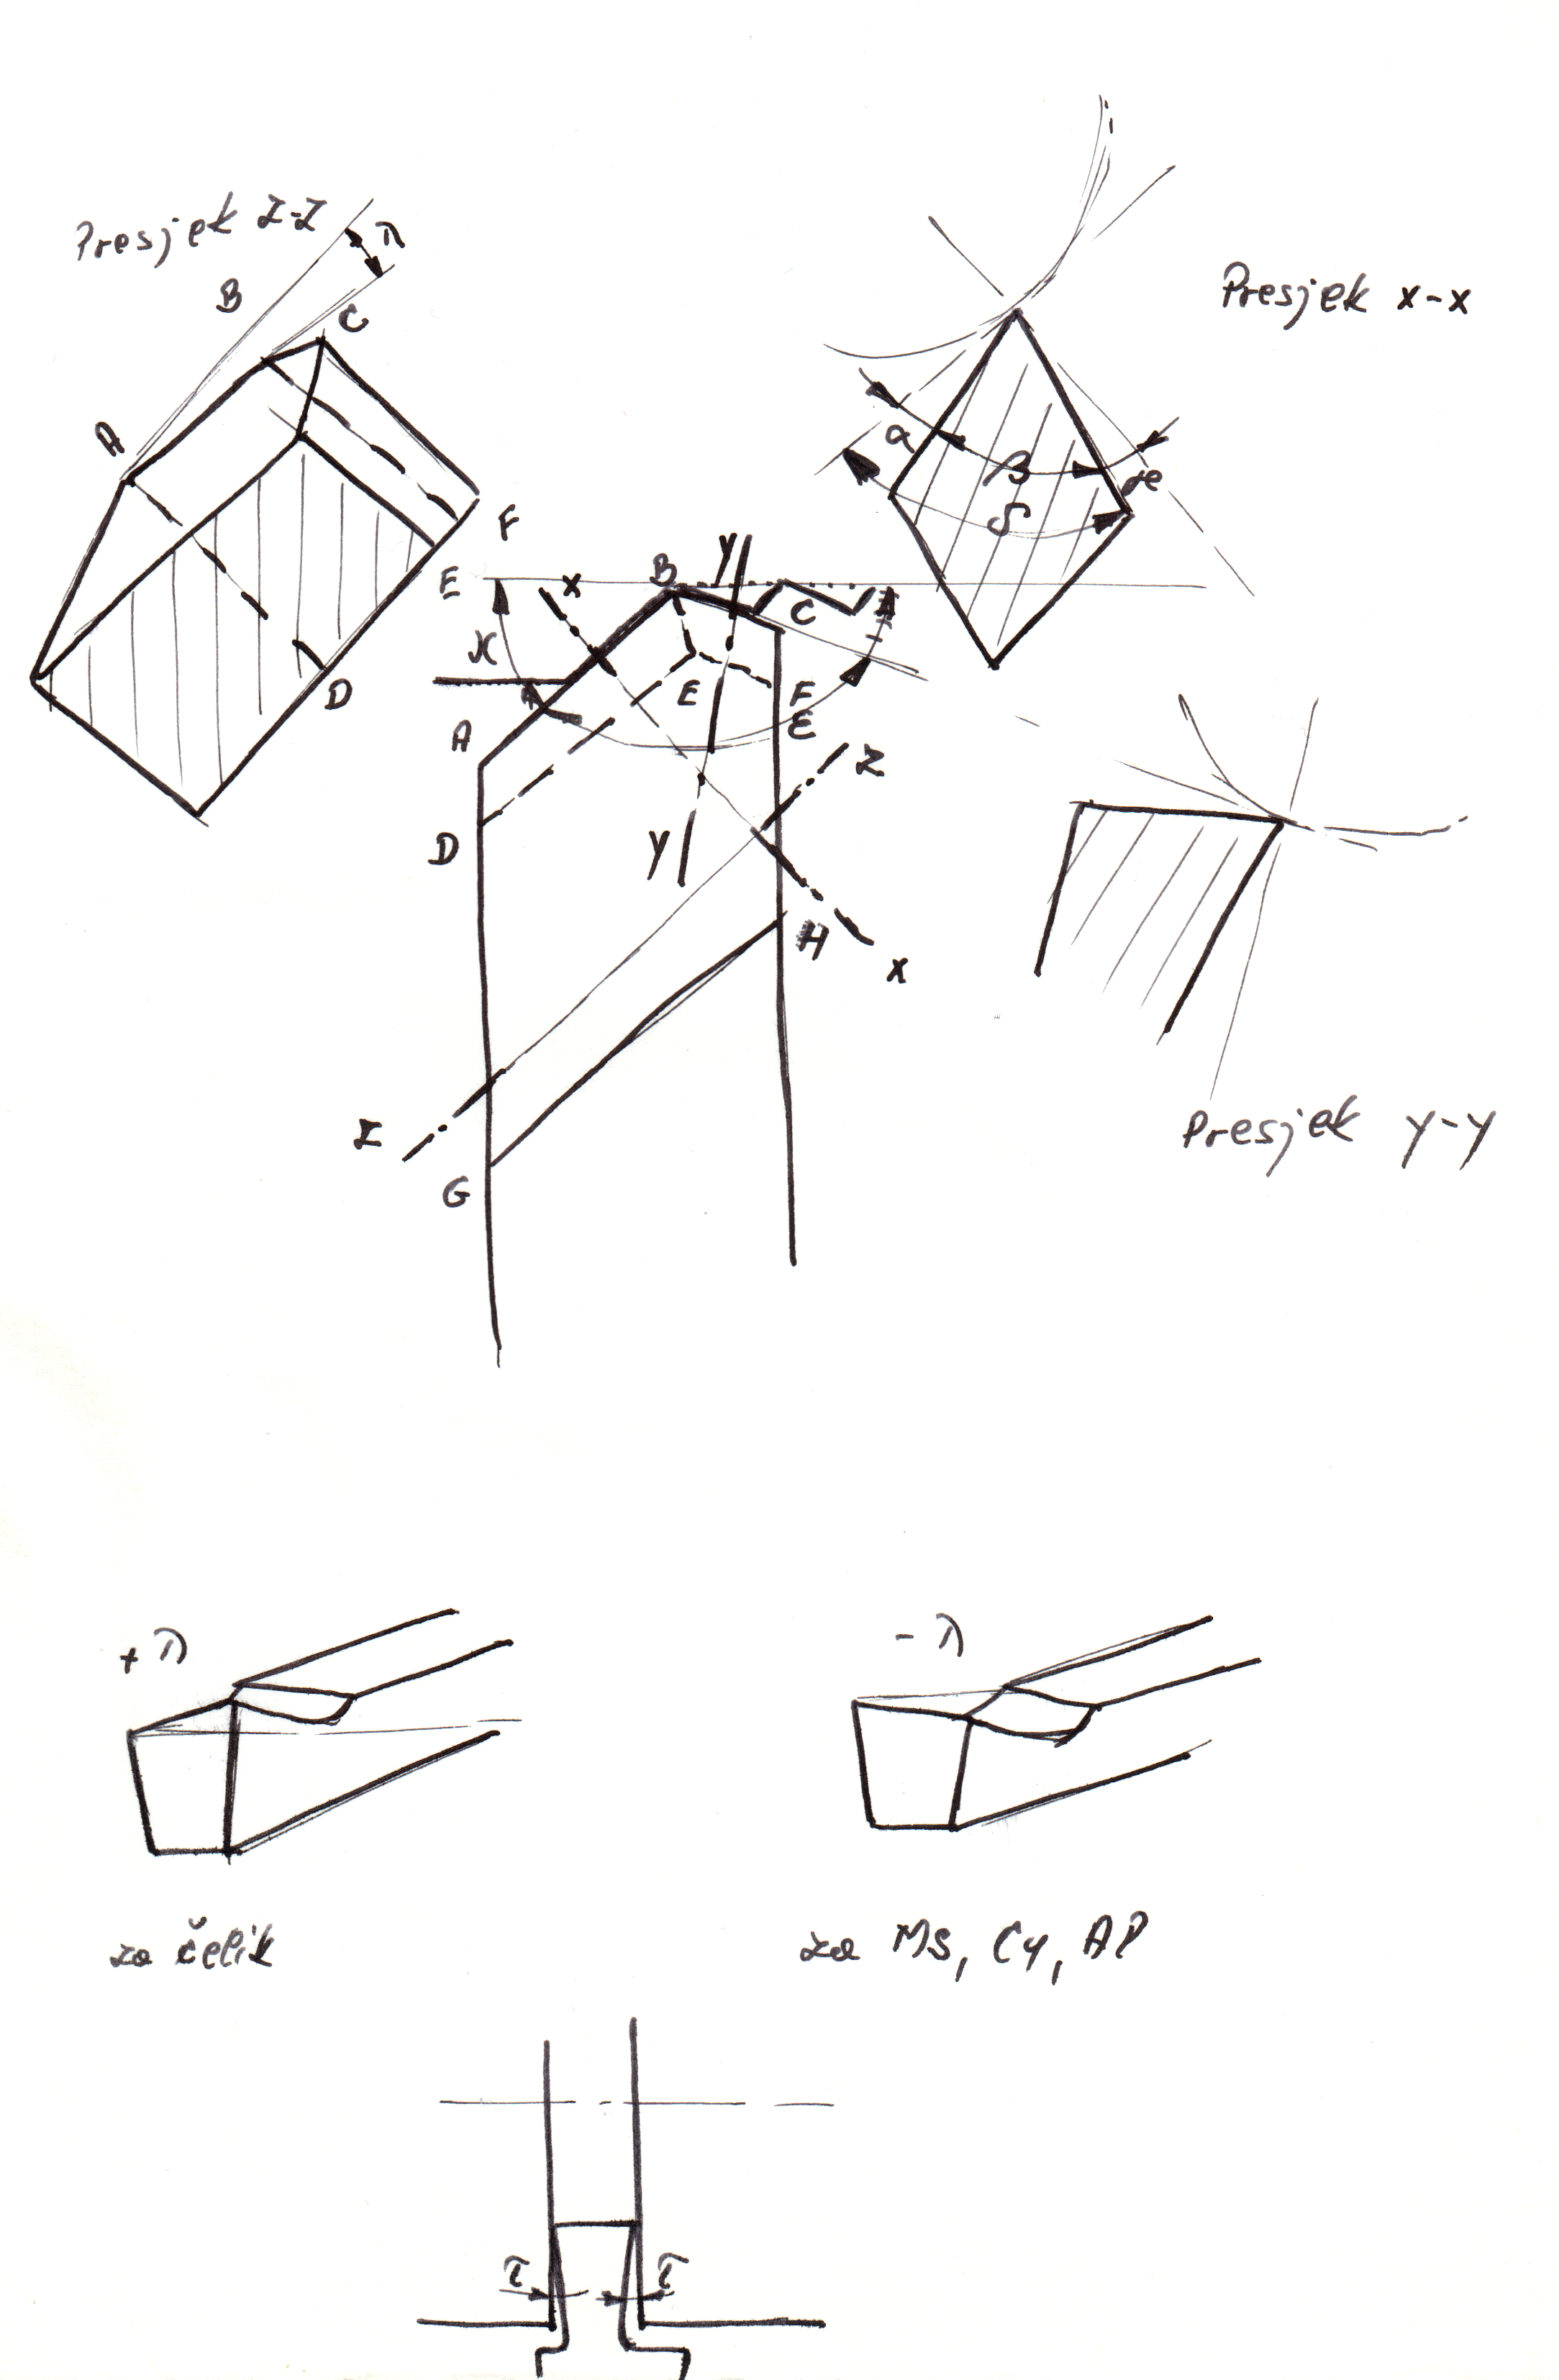 Presjek Z-Z
λ
B
C
A
F
D
Presjek x-x
α
β
γ
δ
E
x
B
y
C
ϰ
E
F
A
ε
Z
D
y
H
x
Z
G
Presjek y-y
+ λ
- λ
za čelik
za Ms, Cu, Al
τ
τ